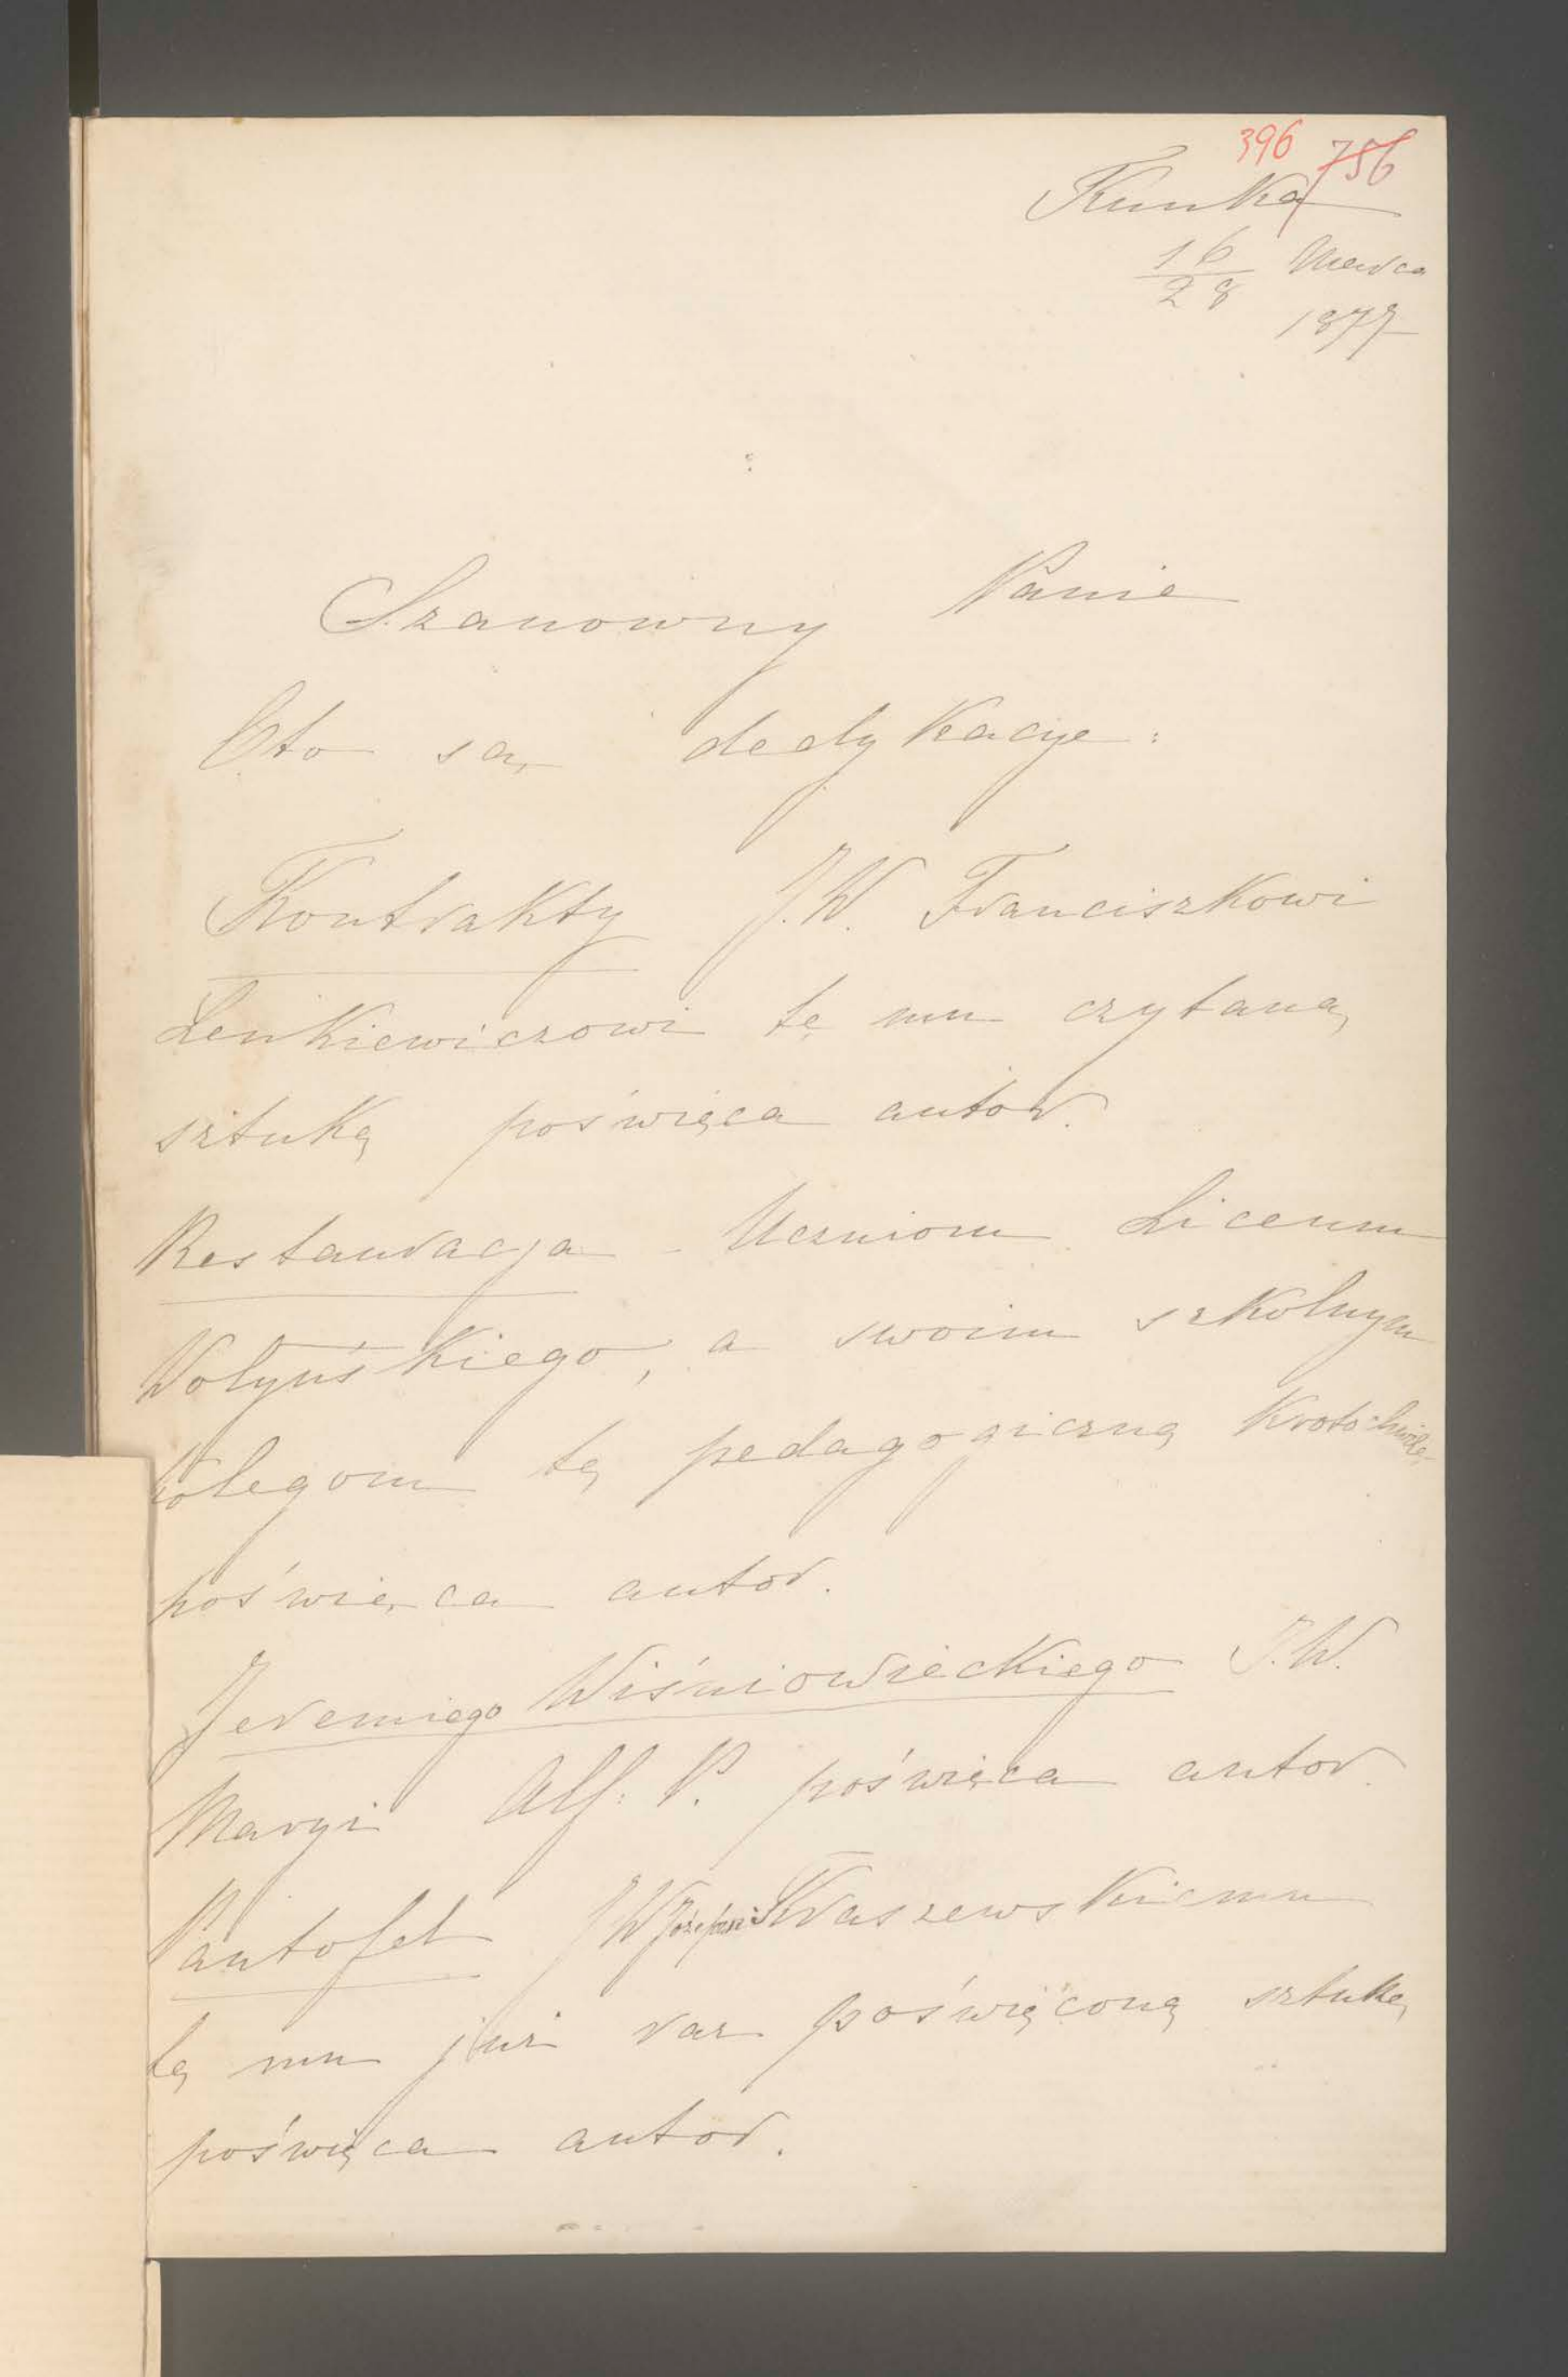 396 756
Kunka
16/28 Marca
1877
Szanowny Panie
Oto są dedykacye:
Kontrakty J.W. Franciszkowi
Lenkiewiczowi tę mu czytaną
sztukę poświęca autor.
Restauracja - Uczniom Liceum
Wołyńskiego, a swoim szkolnym
kolegom tę pedagogiczną krotochwilę
poświęca autor.
Jeremiego Wiśniowieckiego J.W.
Maryi Alf: P. poświęca autor.
Pantofel JW Józefowi Kraszewskiemu
tę mu już raz poświęconą sztukę
poświęca autor.